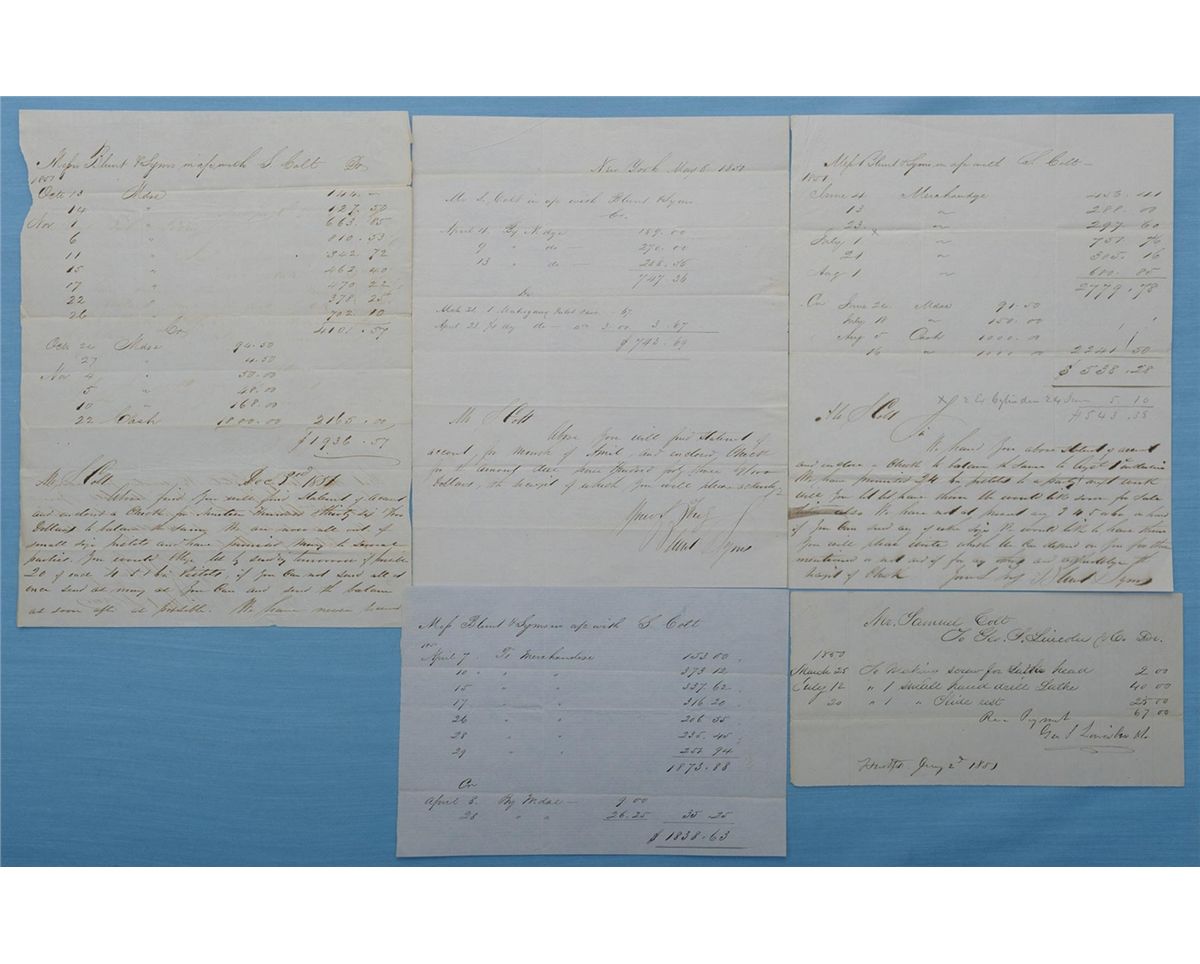 Mess Blunt & Syms in a/c with S. Colt Dr
1851
Octr 13 Mdse 144 –
14 " 127.50
Nov 1 663.85
6 " 810.53
11 " 342 72
15 " 462.40
17 " 470 22
22 " 378.25
26 " 702.10
Cr 4101.57
Octr 24 Mdse 94.50
27 4.50
Nov 4 " 50.00
5 " 48.00
10 " 168.00
22 Cash 1800.00 2165.00
$1936.57
Mr S Colt Dec 3rd 1851
find you will find Statement of account
and enclosed a Check for Nineteen Hundred & thirty six
Dollars to balance the Same. We are now all out of
small size pistols and have promised many to several
parties. You would oblige us by sending tomorrow if possible
20 of each 4. 5 & 6 in Pistols, if you Can not send all at
once send as many as you Can and send the balance
as soon after as possible. We have never
New York May 6 1850
Mr S. Colt in a/c with Blunt & Syms
Cr.
April 4 By Mdze 189.00
9 " do – 270.00
13 " do – 288.36
747.36
Dr
Mch 21 1 Mahogany .67
April 23 do 3.00 3.67
$743.69
Mr S Colt
Above you will find Statement of
account for month of April and enclosed Check
Dollars, the receipt of which you will please acknowledge
Yours Resp
Blunt & Syms
Mess Blunt & Syms in a/c with S. Colt –
1851
June 4 Merchandize
13 " 288.00
23 x " 297 60
July 1 " 751 76
21 " 305.16
Aug 1 " 680.85
2779.78
Cr June 24 Mdse 91.50
July 18 " 150.00
Aug 5 Cash 1000.00
16 " 1000.00 2241 50
$538.28
2 Ex Cylinders 5.10
$543.38
Mr S Colt
We hand you above Statement of account
and enclose a Check to balance the Same to
We have promised 24 in pistols to a party next week
will you let us have them we would like some for Sale
also. We have not at present any 3 4 5 or 6 in hand
if you Can send any of each size We would like to have them
You will please write when we Can depend on you for those
mentioned
receipt of Check Yours Resp Blunt & Syms
Mess Blunt & Syms in a/c with S. Colt
April 7 To Merchandise 153 00
10 " " 373 12
15 " " 337.62
17 " " 316 20
26 " " 206 35
28 " " 235.45
29 " " 251 94
1873.88
Cr
April 5 By Mdse – 9.00
28 " " 26.25 35.25
$1838.63
Mr. Samuel Colt
To Geo. S. Lincoln & Co. Dr.
1850
March 25 To Making screw for Lathe head 2.00
July 12 " 1 small hand drill Lathe 40 00
" 20 " 1 " Slide rest 25 00
Rec Payment 67.00
Geo S Lincoln & Co.
Hartfd Jany 2d 1851